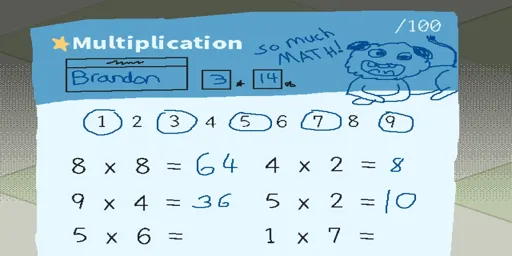 /100
Multiplication
so much
MATH!
Brandon 3 14
1 2 3 4 5 6 7 8 9
8 x 8 = 64 4 x 2 = 8
9 x 4 = 36 5 x 2 = 10
5 x 6 = 1 x 7 =